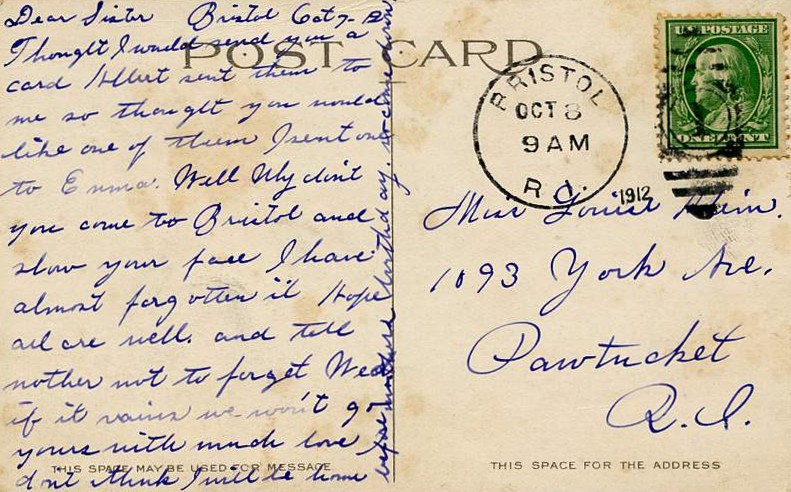 POST CARD
Dear Sister Bristol Oct 7-12
Thought I would send you a
card Albert sent them to
me so thought you would
like one of them I sent one
to Emma. Well Why dint
you come to Bristol and
slow your face I have
almost forgotten it Hope
all are well. and tell
mother not to forget Wed
if it rains we won't go
yours with much love
don't think I will be home
before mothers birthday. so come down
THIS SPACE MAY BE USED FOR MESSAGE
U.S. POSTAGE
ONE CENT
BRISTOL
OCT 8
9 AM
R.I.
1912
Miss Louise
1093 York Ave.
Pawtucket
R.I.
THIS SPACE FOR THE ADDRESS